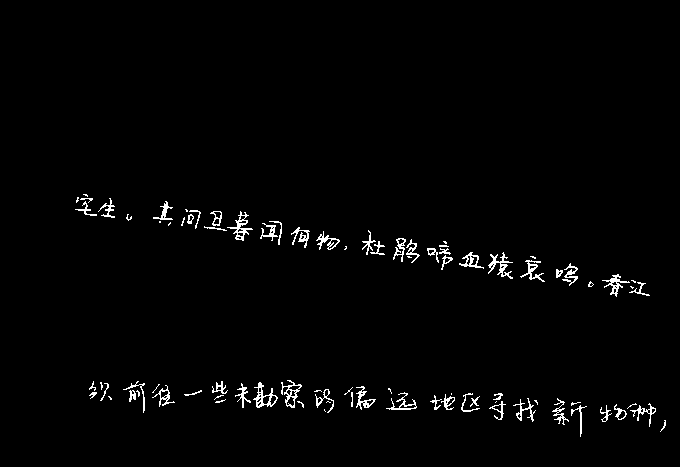 宅生。其间旦暮闻何物,杜鹃啼血猿哀鸣。春江
织前往一些未勘察的偏远地区寻找新物种,